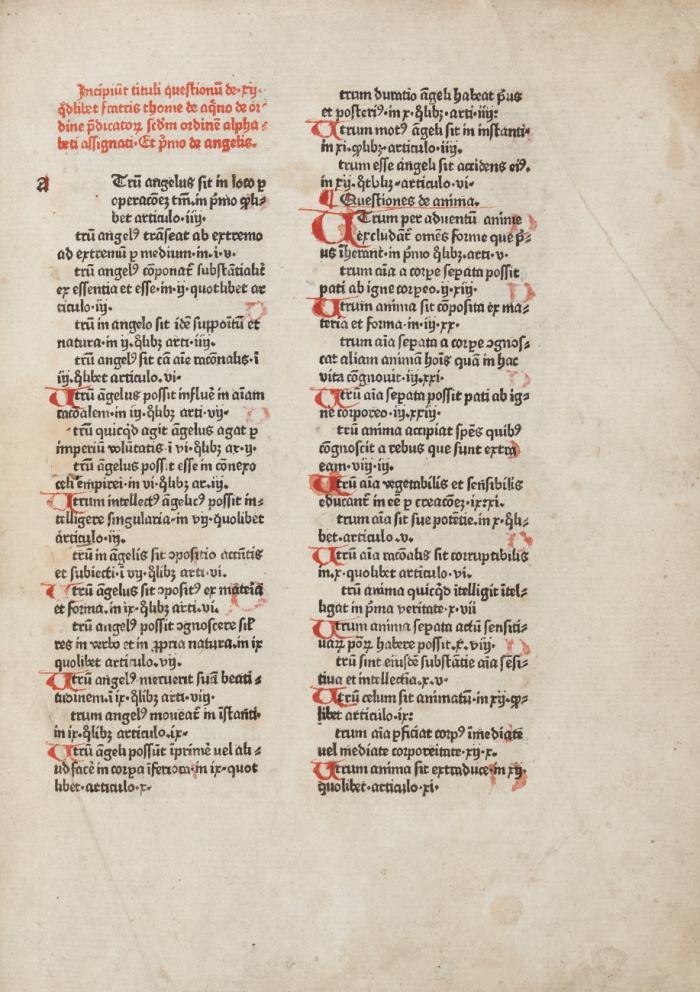 Incipiūt tituli questionū de·xij·
q̄dlibet fratris thome de aq̄no de or⸗
dine p̄dicatoꝝ scdm ordinē alpha⸗
beti assignati·Et p̄mo de angelis·
a Trū angelus sit in loco ꝑ
operacōeꝫ tm̄·in p̄mo qͦli⸗
bet articulo·iiij·
trū angelꝰ trāseat ab extremo
ad extremū ꝑ medium·in·i·v·
trū angelꝰ cōponat᷑ substātialit᷑
ex essentia et esse·in·ij·quotlibet ar
ticulo·iij·
trū in angelo sit idē suppoītū et
natura·in ij·q̄libꝫ arti·iiij·
trū angelꝰ sit cā aīe racōnalis·ī
iij·q̄libet articulo·vi·
Utrū āgelus possit influē in aīam
racōalem·in iij·q̄libꝫ arti·vij·
trū quicqd agit āgelus agat ꝑ
imperiū volūtatis·ī vi·q̄libꝫ ar·ij·
trū āgelus possit esse in cōnexo
celi empirei·in vi·q̄libꝫ ar·iij·
Utrum intellectꝰ āgelicꝰ possit in⸗
telligere singularia·in vij·quolibet
articulo·iij·
trū in āgelis sit ꝯpositio accn̄tis
et subiecti·ī vij·q̄libꝫ arti·vi·
Utrū āgelus sit ꝯpositꝰ ex mateīa
et forma·in ix·q̄libꝫ arti·vi·
trū angelꝰ possit ꝯgnoscere sil̄
res in verbo et in ꝓpria natura·in ix
quolibet articulo·vij·
Utrū āgelꝰ meruerit suā beati⸗
tudinem·ī ix·q̄libꝫ arti·viij·
trum angelꝰ moueat᷑ in īstanti·
in ix·q̄libꝫ articulo·ix·
Utrū āgeli possūt īprimē uel ali⸗
ud facē in corpa īferiora·in ix·quot
libet·articulo·x·
trum duratio āgeli habeat p̄us
et posteriꝰ·in x·q̄libꝫ·arti·iiij:
Utrum motꝰ āgeli sit in instanti·
in xi·qͦlibꝫ·articulo·iiij·
trum esse āngeli sit accidens eiꝰ·
in xij·qͦtlibꝫ·articulo·vi·
¶ Questiones de anima·
UTrum per aduentū anime
excludāt᷑ omēs forme que p̄⸗
us īherant·in p̄mo q̄libꝫ·arti·v·
trum aīa a corpe sepata possit
pati ab igne corpeo·ij·xiij·
Utrum anima sit cōposita ex ma⸗
teria et forma·in·iij·xx·
trum aīa sepata a corpe ꝯgnos⸗
cat aliam animā hoīs quā in hac
vita cognouit·iij·xxi·
Utrū aīa sepata possit pati ab ig⸗
ne corporeo·iij·xxiij·
trū anima accipiat spēs quibꝰ
cōgnoscit a rebus que sunt extra
eam·viij·iij·
Utrū aīa vegetabilis et sēsibilis
educant᷑ in eē ꝑ creacōeꝫ·ix·xi·
trum aīa sit sue potētie·in x·q̄li⸗
bet·articulo·v·
Utrū aīa racōalis sit corruptibilis
in·x·quolibet articulo·vi·
trū anima quicqͦ itelligit ītel⸗
ligat in p̄ma veritate·x·vij
Utrum anima sepata actū sensiti⸗
uaꝝ poꝝ habere possit·x·viij·
trū sint eiusdē substātie aīa sēsi⸗
tiua et intellectīa·x·v·
Utrū celum sit animatū·in xij·qͦ⸗
libet articulo·ix:
trum aīa ꝑficiat corpꝰ īmediate
uel mediate corporeitate·xij·x·
Utrum anima sit extraduce·in xij·
quolibet·articulo·xi·